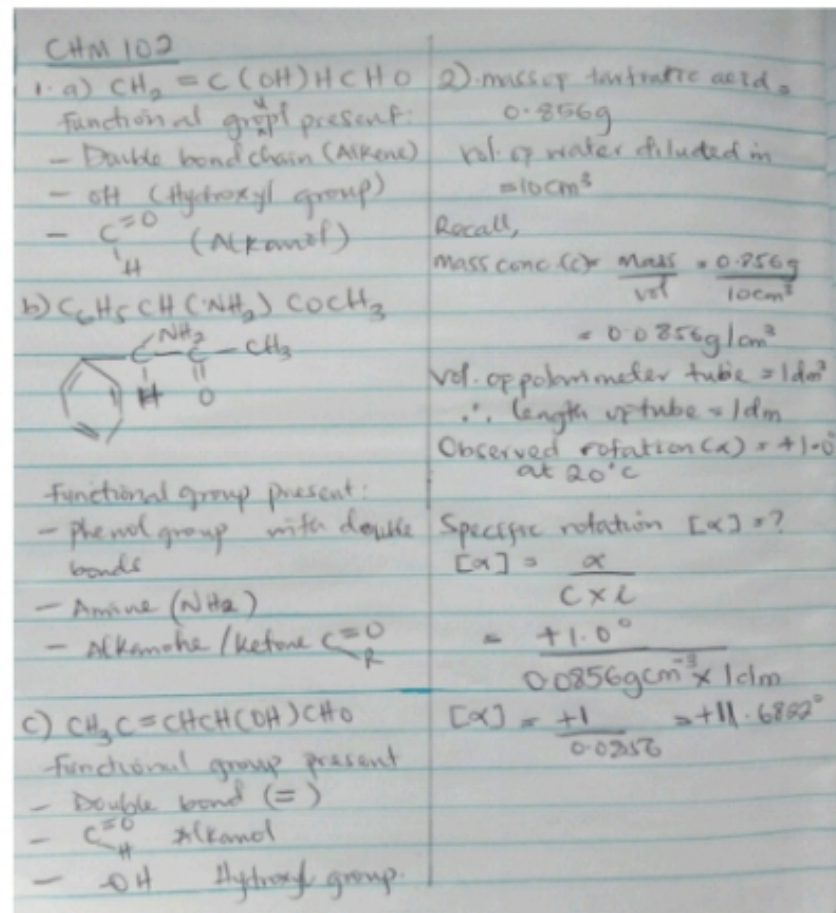 CHM 102
1. a) CH₂ = C(OH)HCHO
functional group present:
- Double bond chain (Alkene)
- OH (Hydroxyl group)
- C=O (Alkanol)
H
b) C₆H₅CH(NH₂)COCH₃
NH₂
C - C - CH₃
H O
functional group present:
- phenol group with double
bonds
- Amine (NH₂)
- Alkanone/ketone C=O
R
c) CH₃C=CHCH(OH)CHO
functional group present
- Double bond (=)
- C=O Alkanol
H
- -OH Hydroxyl group.
2) mass of tartratic acid =
0.856g
vol. of water diluted in
=10cm³
Recall,
mass conc. (c) = mass = 0.856g
vol 10cm³
= 0.0856g/cm³
Vol. of polarimeter tube = 1dm³
∴ length of tube = 1dm
Observed rotation (α) = +1.0°
at 20°C
Specific rotation [α] = ?
[α] = α
C x l
= +1.0°
0.0856gcm⁻³ x 1dm
[α] = +1 = +11.6822°
0.0856